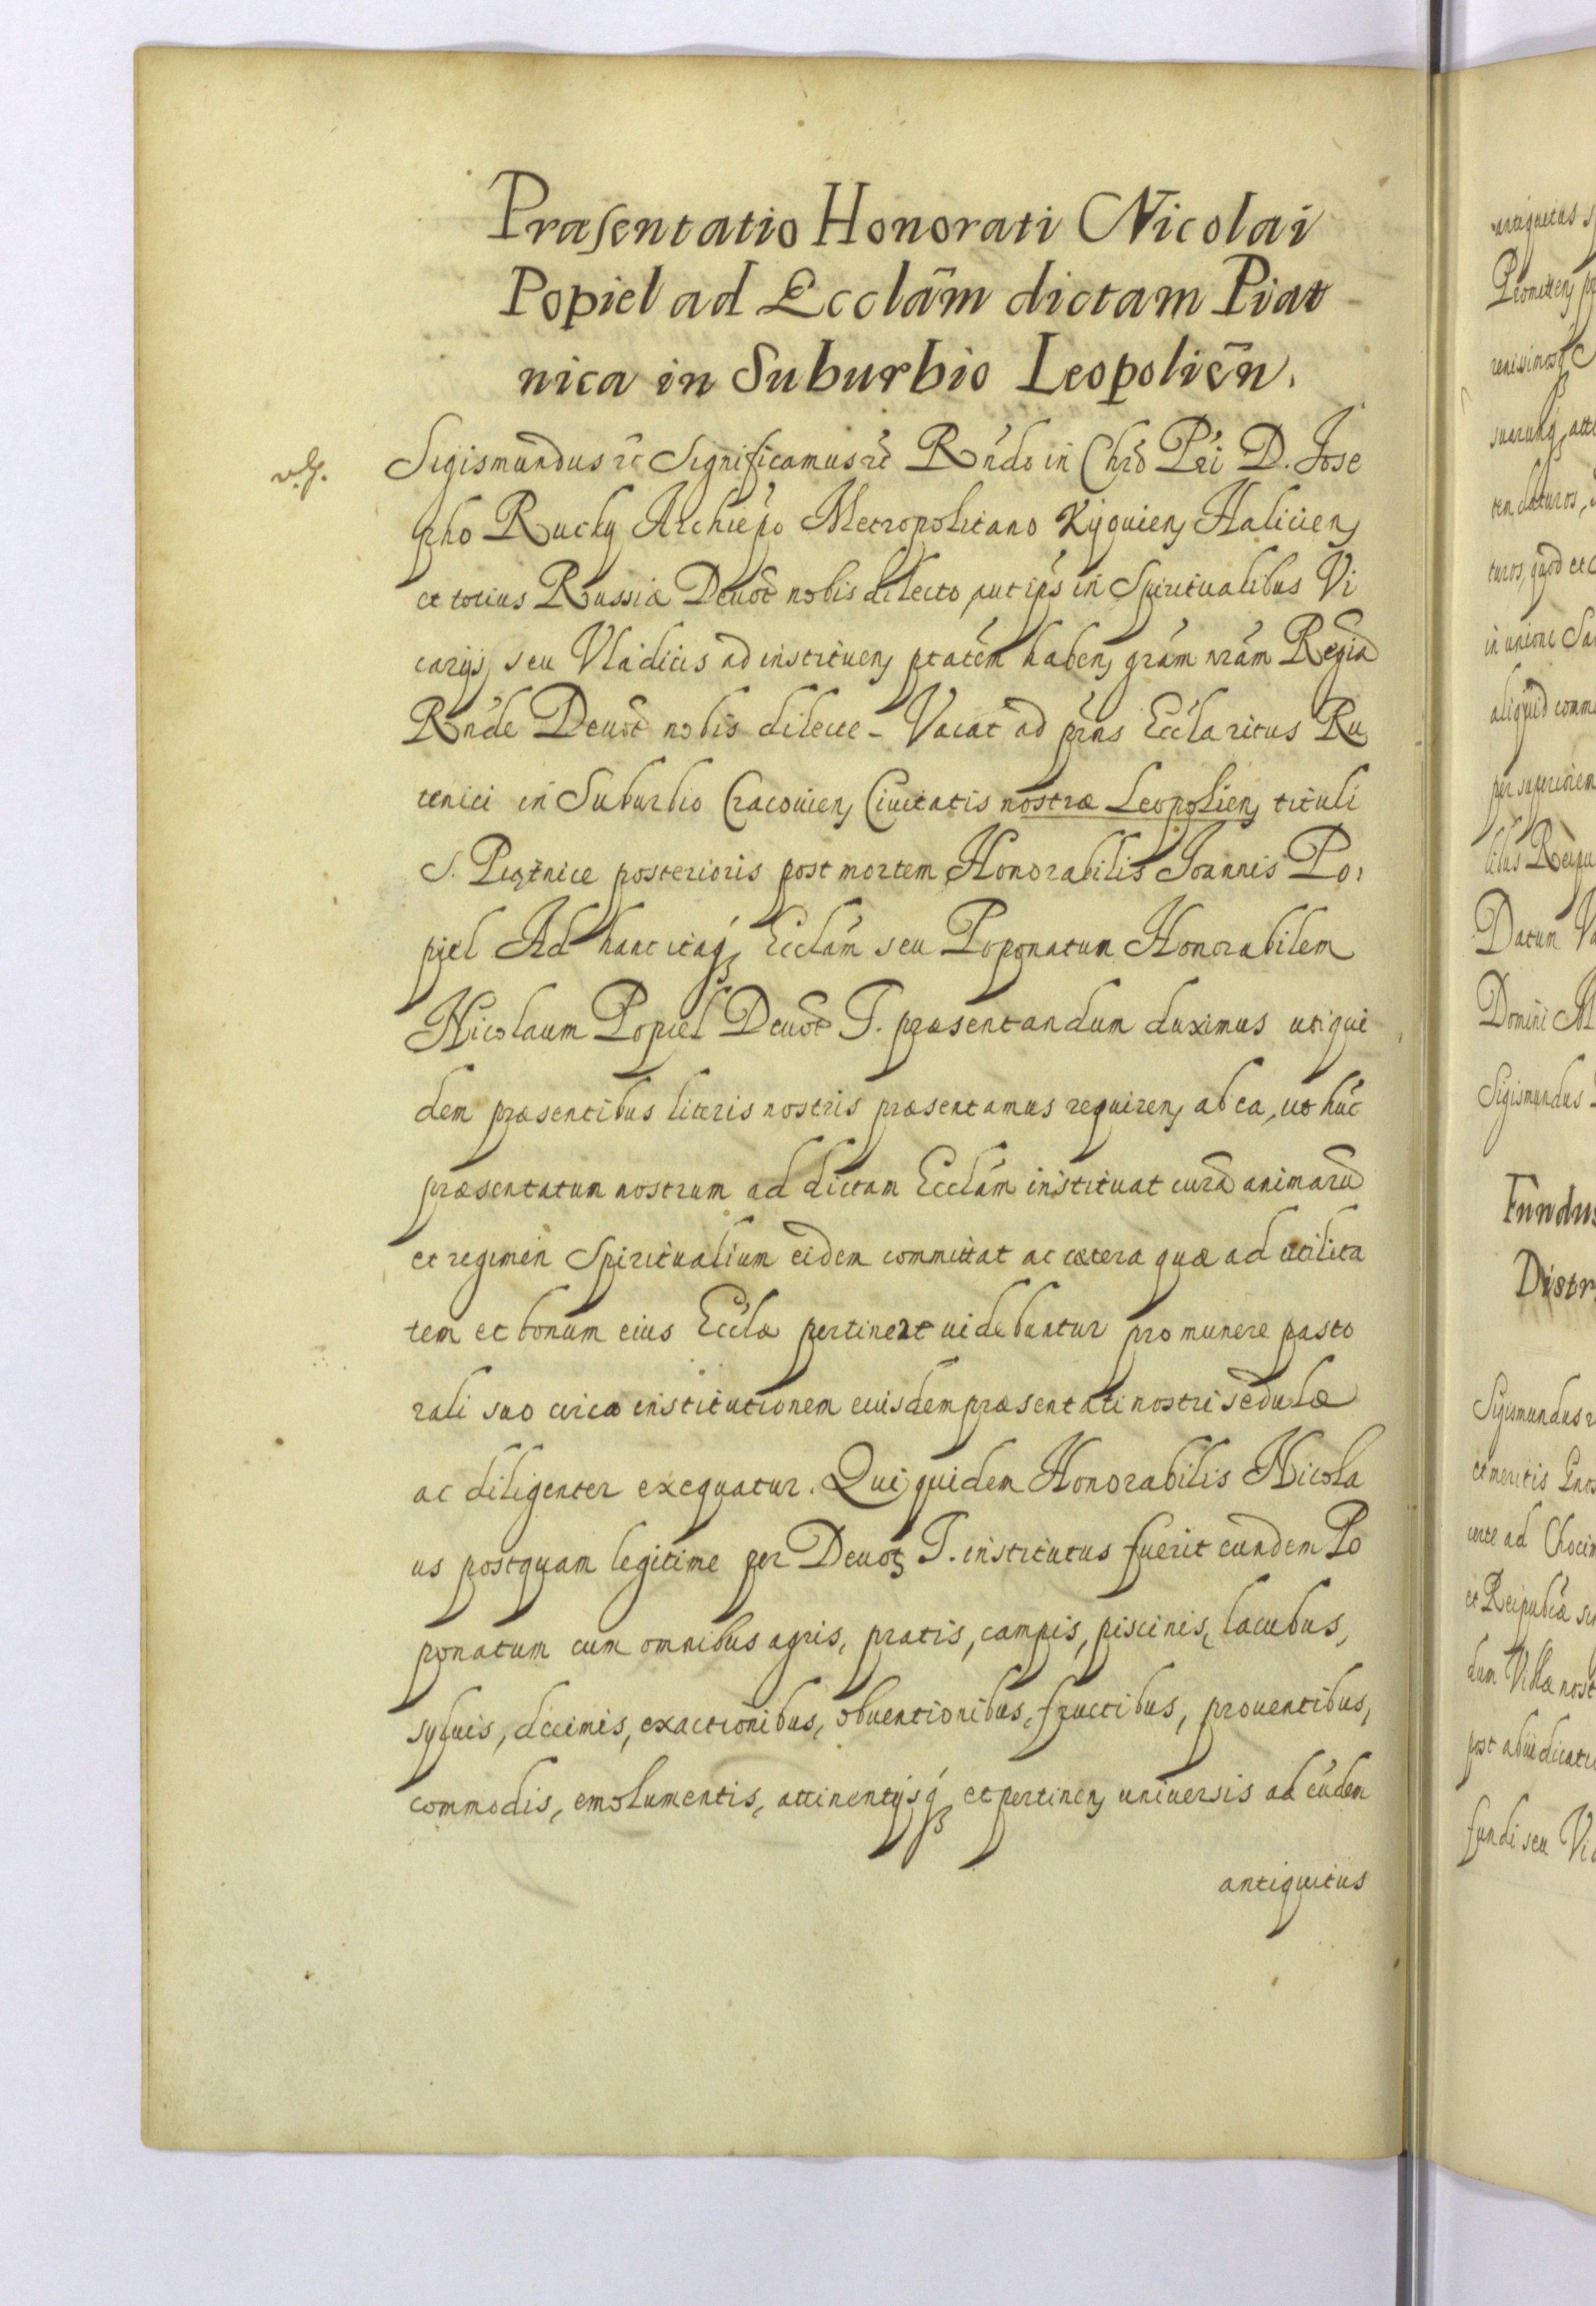 Præsentatio Honorati Nicolai
Popiel ad Ecclãm dictam Piat-
nica in Suburbio Leopoliẽn.
Sigismundus etc Significamus etc Rńdo in Chrõ Pŕi D. Jose
pho Rucky Archiep̃o Metropolitano Kijouien, Halicien,
et totius Russiæ Deuot̃ nobis dilecto aut ip̃s in Spiritualibus Vi
carijs, seu Vladicis ad instituen, pt̃atem haben, grám nrám Regiã
Rńde Deuot̃ nobis dilecte - Vacat ad pŕns Eccĺa ritus Ru
tenici in Suburbio Cracouien, Ciuitatis nostræ Leopolien, tituli
S. Piątnice posterioris post mortem Honorabilis Joannis Po,
piel Ad hanc itaq, Eccĺam seu Poponatum Honorabilem
Nicolaum Popiel Deuot̃ T. præsentandum duximus uti qui
dem præsentibus literis nostris præsentamus requiren, ab ea, ut huć
præsentatum nostrum ad dictam Eccĺam instituat curã animarũ
et regimen Spiritualium eidem committat ac cætera quæ ad utilita
tem et bonum eius Eccĺæ pertinere uidebuntur pro munere pasto
rali suo circa institutionem eiusdem præsentati nostri sedulæ
ac diligenter exequatur. Qui quidem Honorabilis Nicola
us postquam legitime per Deuot, T. institutus fuerit eundem Po
ponatum cum omnibus agris, pratis, campis, piscinis, lacubus,
syluis, decimis, exactionibus, obuentionibus, fructibus, prouentibus,
commodis, emolumentis, attinentijsq, et pertinen, uniuersis ad eúdem
antiquitus
Fundus
Distr
Sigismundus
Datum
Domini